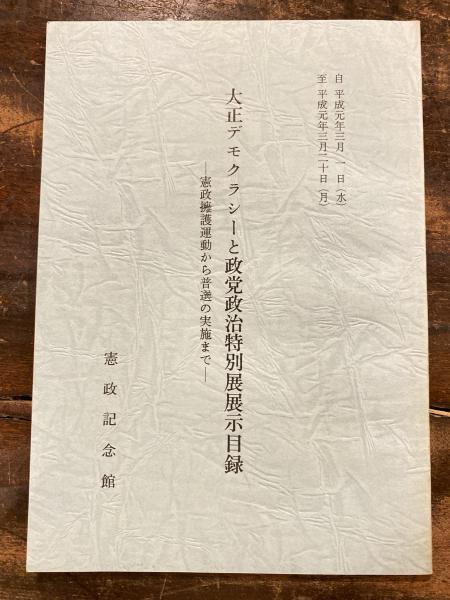 自 平成元年三月 一 日(水)
至 平成元年三月二十日(月)
大正デモクラシーと政党政治特別展展示目録
―憲政擁護運動から普選の実施まで―
憲政記念館